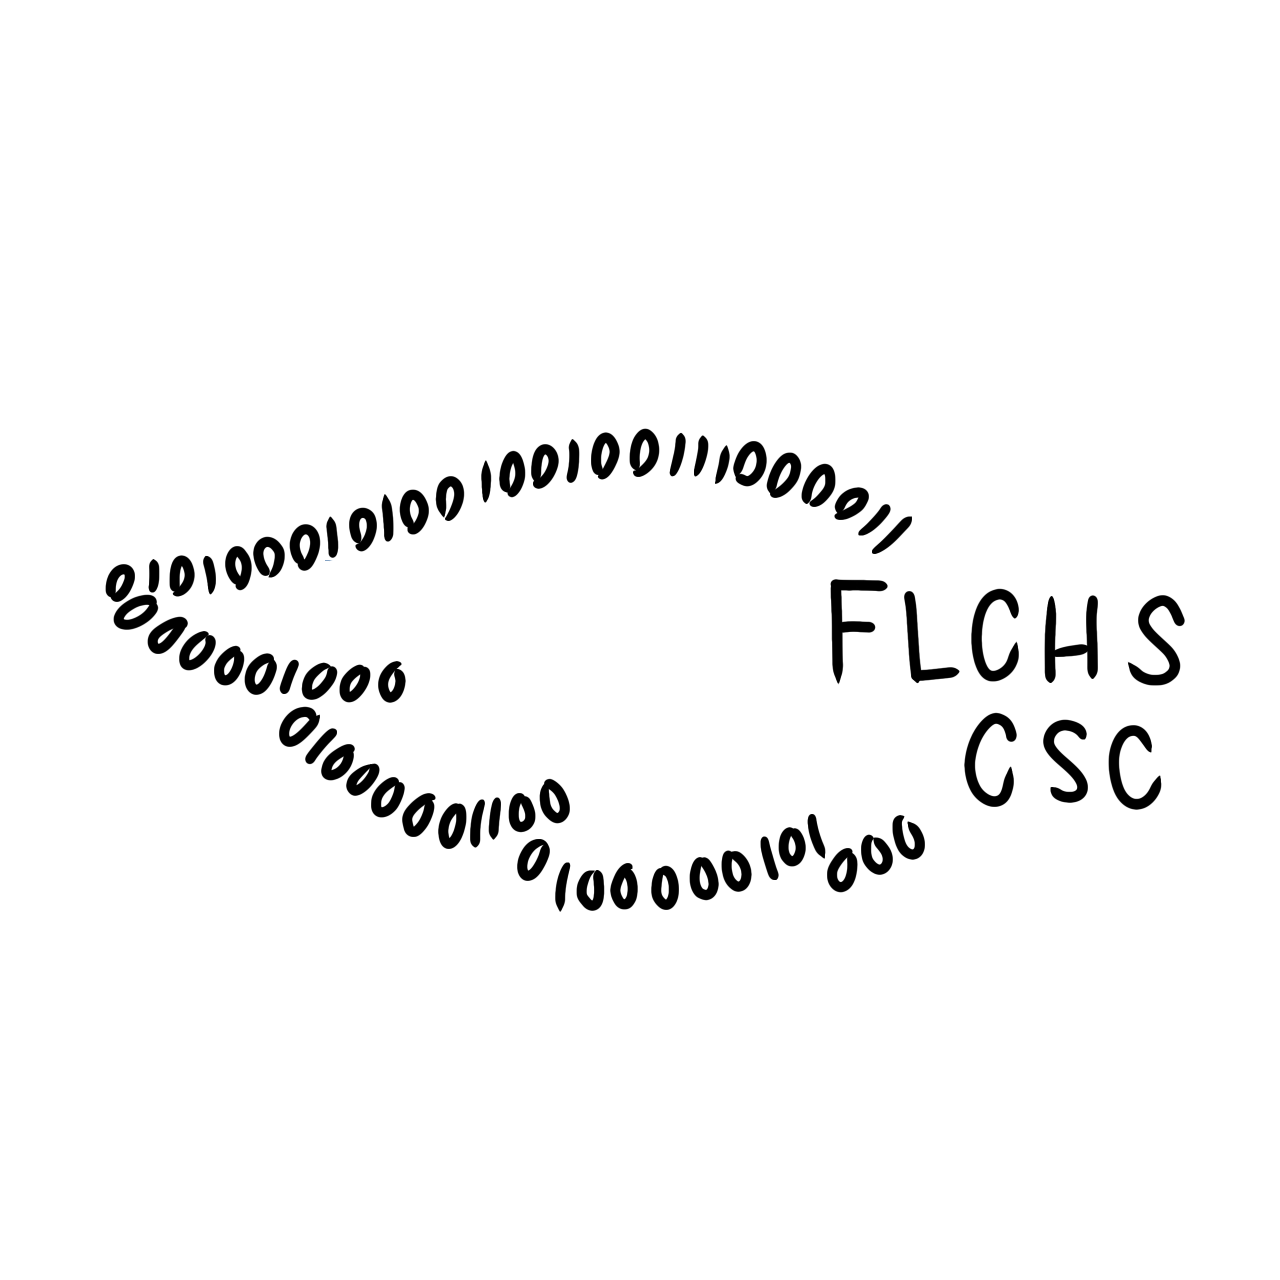 010100010100 100100111000011
000001000
01000001100
0100000101000
FLCHS
CSC